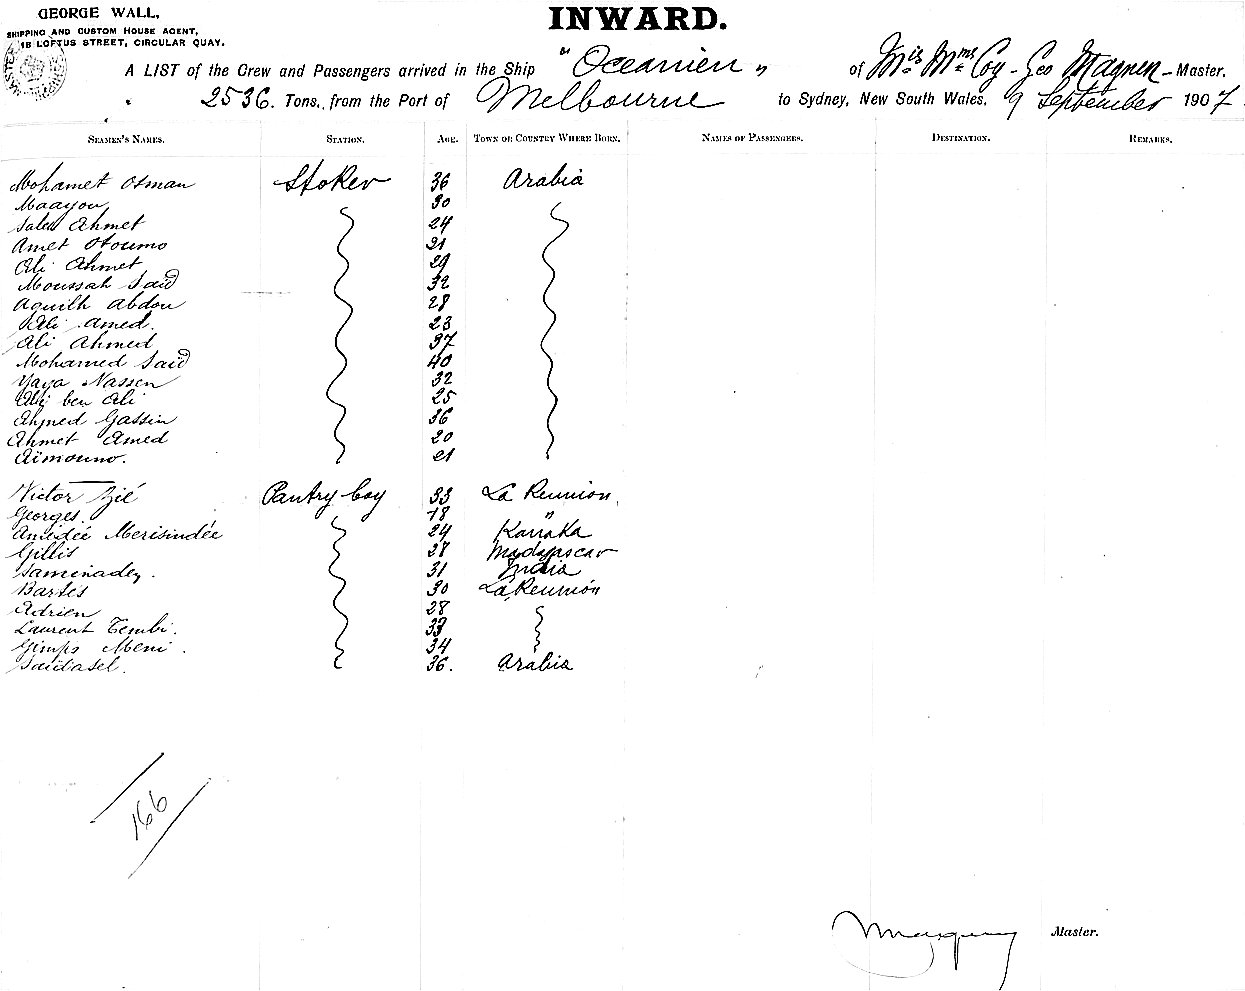 GEORGE WALL,
SHIPPING AND CUSTOM HOUSE AGENT,
LOFTUS STREET, CIRCULAR QUAY.
INWARD.
A LIST of the Crew and Passengers arrived in the Ship "Oceanien" of Mis Mmes Coy - Geo Magnen - Master.
2536. Tons., from the Port of Melbourne to Sydney, New South Wales, 9 September 1907.
SEAMEN'S NAMES. STATION. AGE. TOWN OR COUNTRY WHERE BORN. NAMES OF PASSENGERS. DESTINATION. REMARKS.
Mohamet Osman Stoker 36 Arabia
Maayou 30
Saleh Ahmet 24
Amet Otoumo 21
Ali Ahmet 29
Moussah Said 32
Aquilh Abdou 28
Ali Amed. 23
Ali Ahmed 37
Mohamed Said 40
Yaya Nassen 32
Ali ben Ali 25
Ahmed Gassin 36
Ahmet Amed 20
Aïmouno. 21
Victor Zié Pantry boy 33 La Reunion
Georges. 18 "
Amédée Merisindée 24 Kanaka
Gillis 28 Madagascar
Saminadey. 31 India
Bartés 30 La Reunion
Adrien 28
Laurent Tembi. 33
Gimps Meni. 34
Saidasel. 36. Arabia
166
Master.